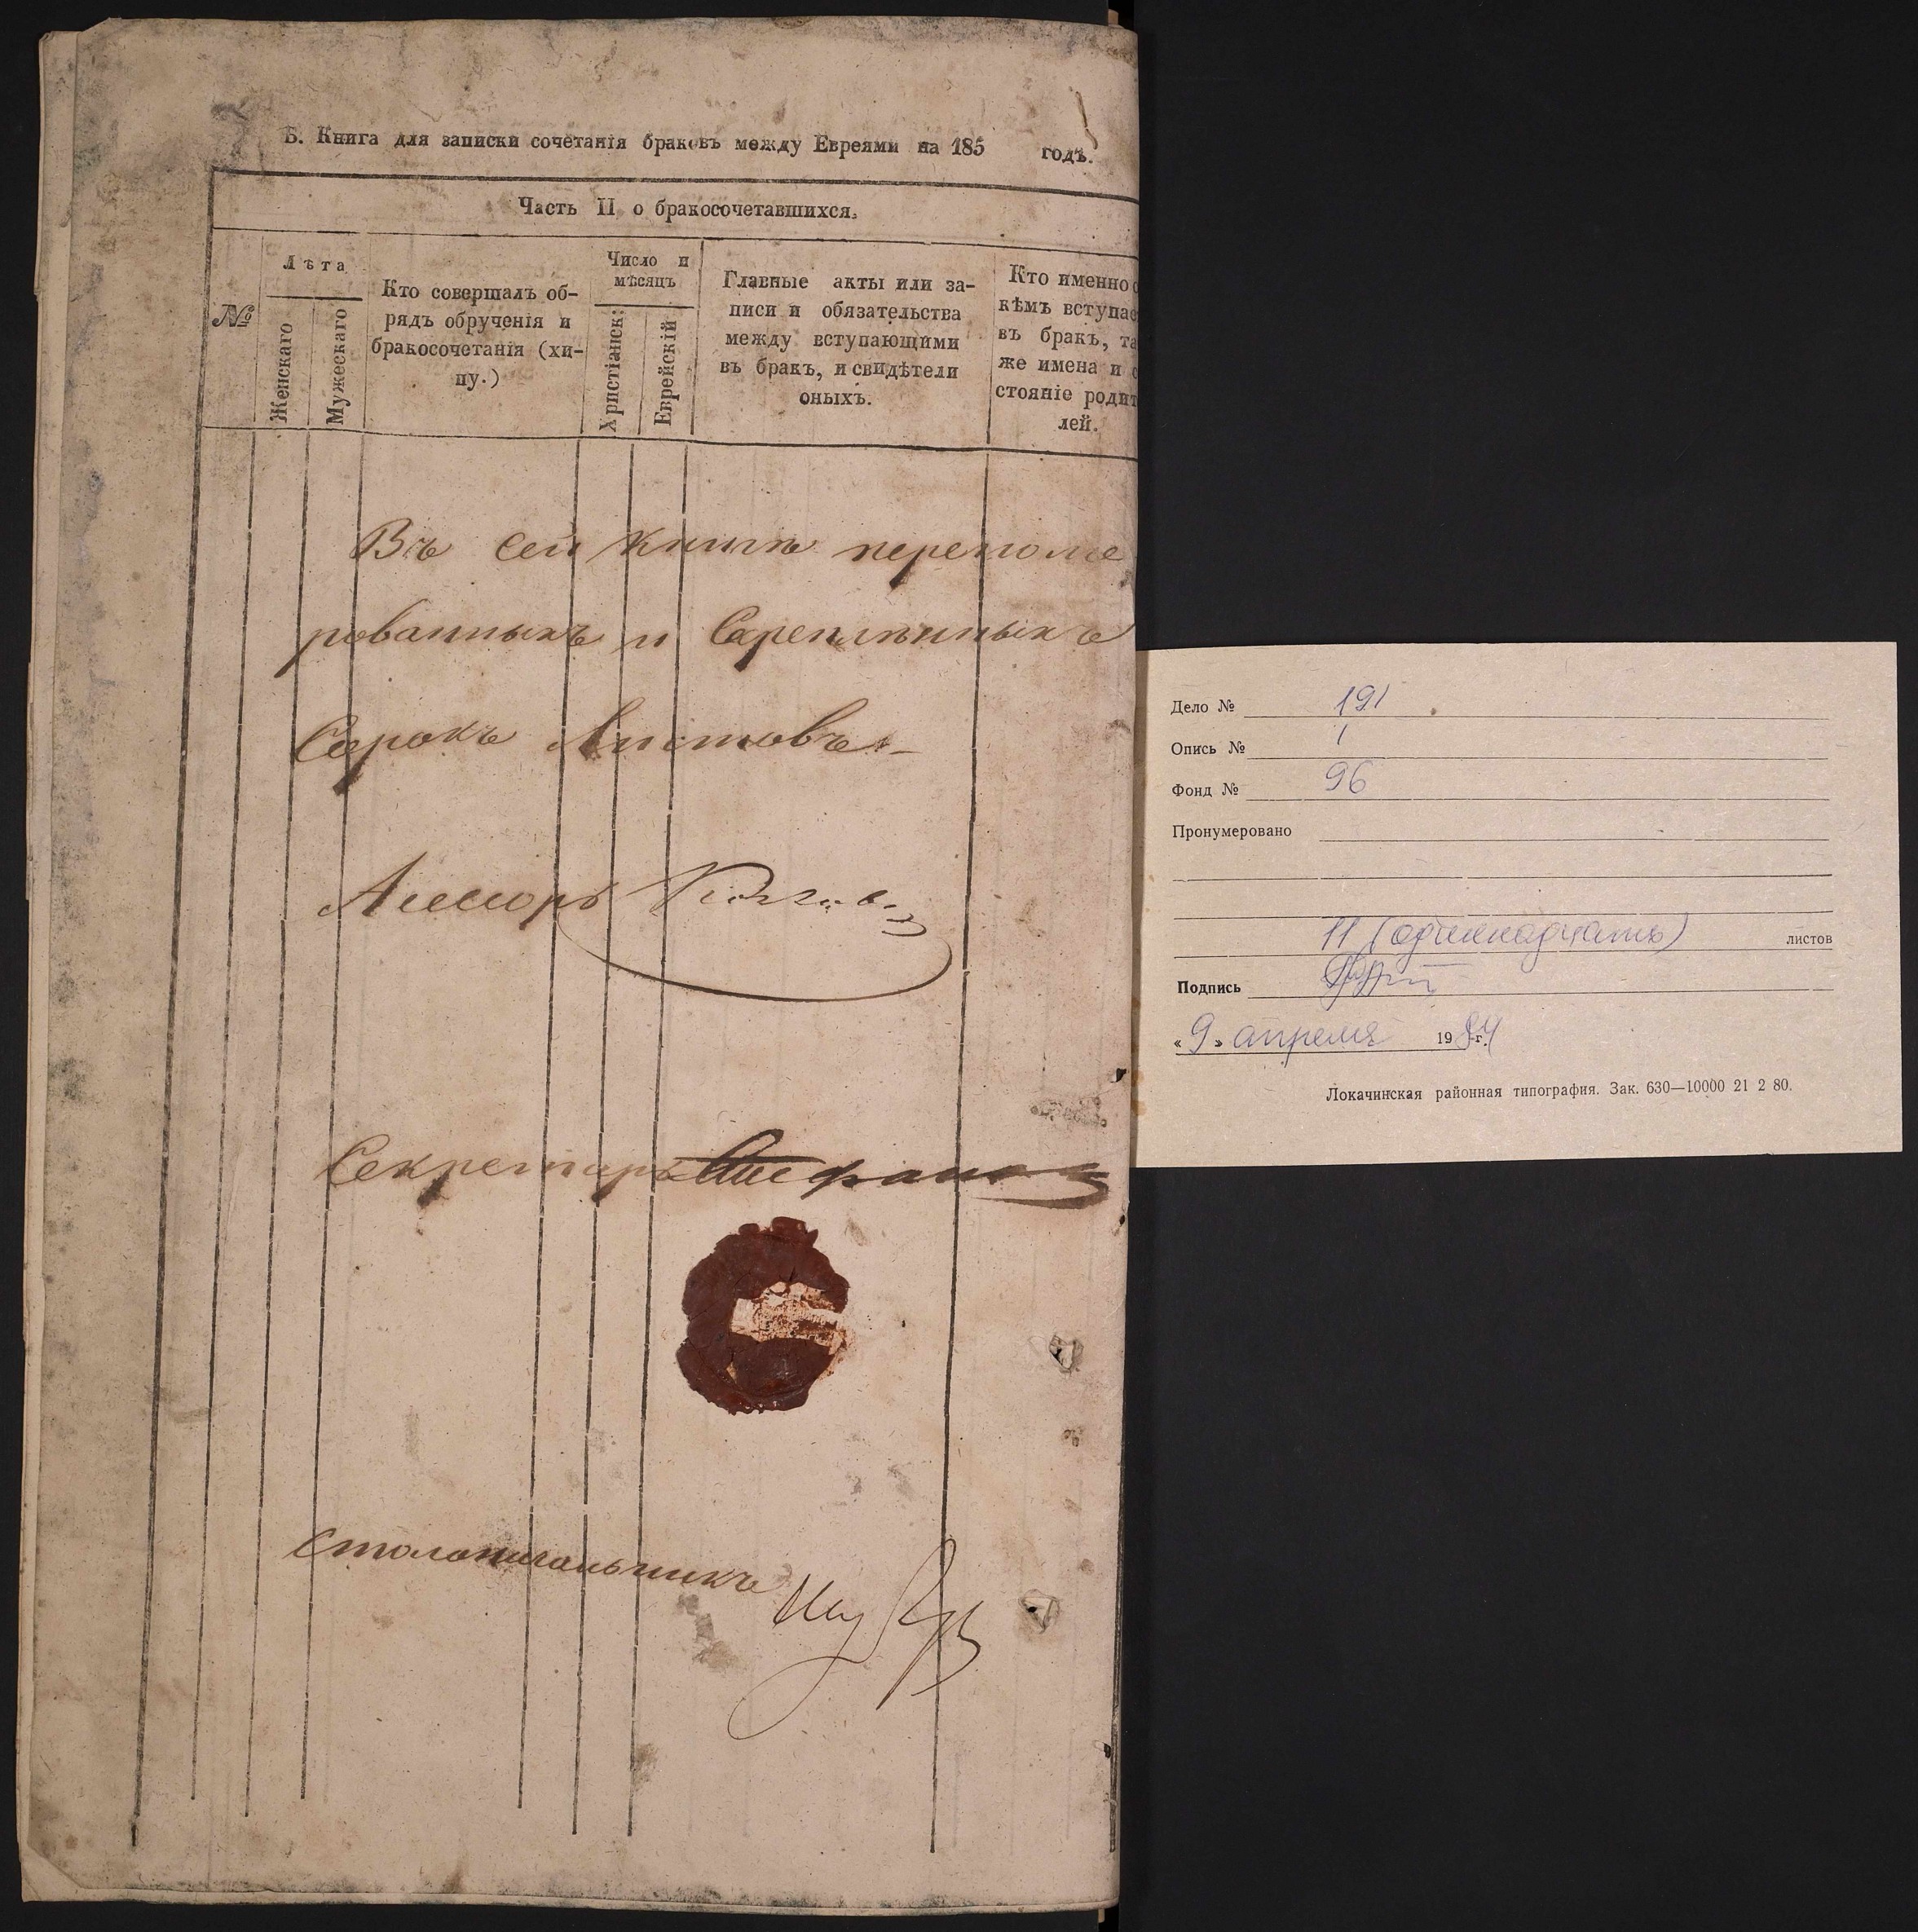 Б. Книга для записки сочетанія браковъ между Евреями на 185 годъ.
Часть II о бракосочетавшихся.
№
Лѣта
Женскаго
Мужескаго
Кто совершалъ об-
рядъ обрученія и
бракосочетанія (хи-
пу.)
Число и
мѣсяцъ
Христіанск:
Еврейскій
Главные акты или за-
писи и обязательства
между вступающими
въ бракъ, и свидѣтели
оныхъ.
Кто именно с
кѣмъ вступае
въ бракъ, та
же имена и с
стояніе родит
лей.
Въ сей книгѣ переноме
рованныхъ и Скрепленныхъ
Сорокъ Листовъ
Ассесоръ
Секретарь
Столоначальникъ
Дело № 191
Опись № 1
Фонд № 96
Пронумеровано
11 (одиннадцать) листов
Подпись
«9» апреля 1984 г.
Локачинская районная типография. Зак. 630—10000 21 2 80.